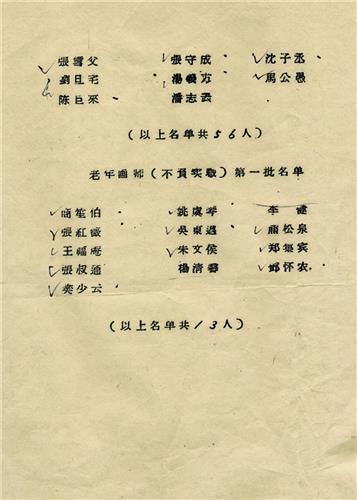 張雪父 張守成 沈子丞
劉旦宅 湯義方 馬公愚
陈巨來 潘志云
(以上名单共56人)
老年画师(不負实职)第一批名单
商笙伯 姚虞琴 李
張紅薇 吳東邁 蕭松泉
王福庵 朱文侯 郑集宾
張叔通 楊清磬 邓怀农
奕少云
(以上名单共13人)